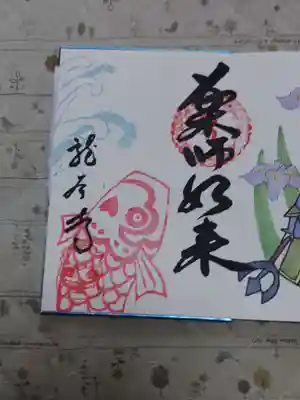 薬師如来
龍本寺